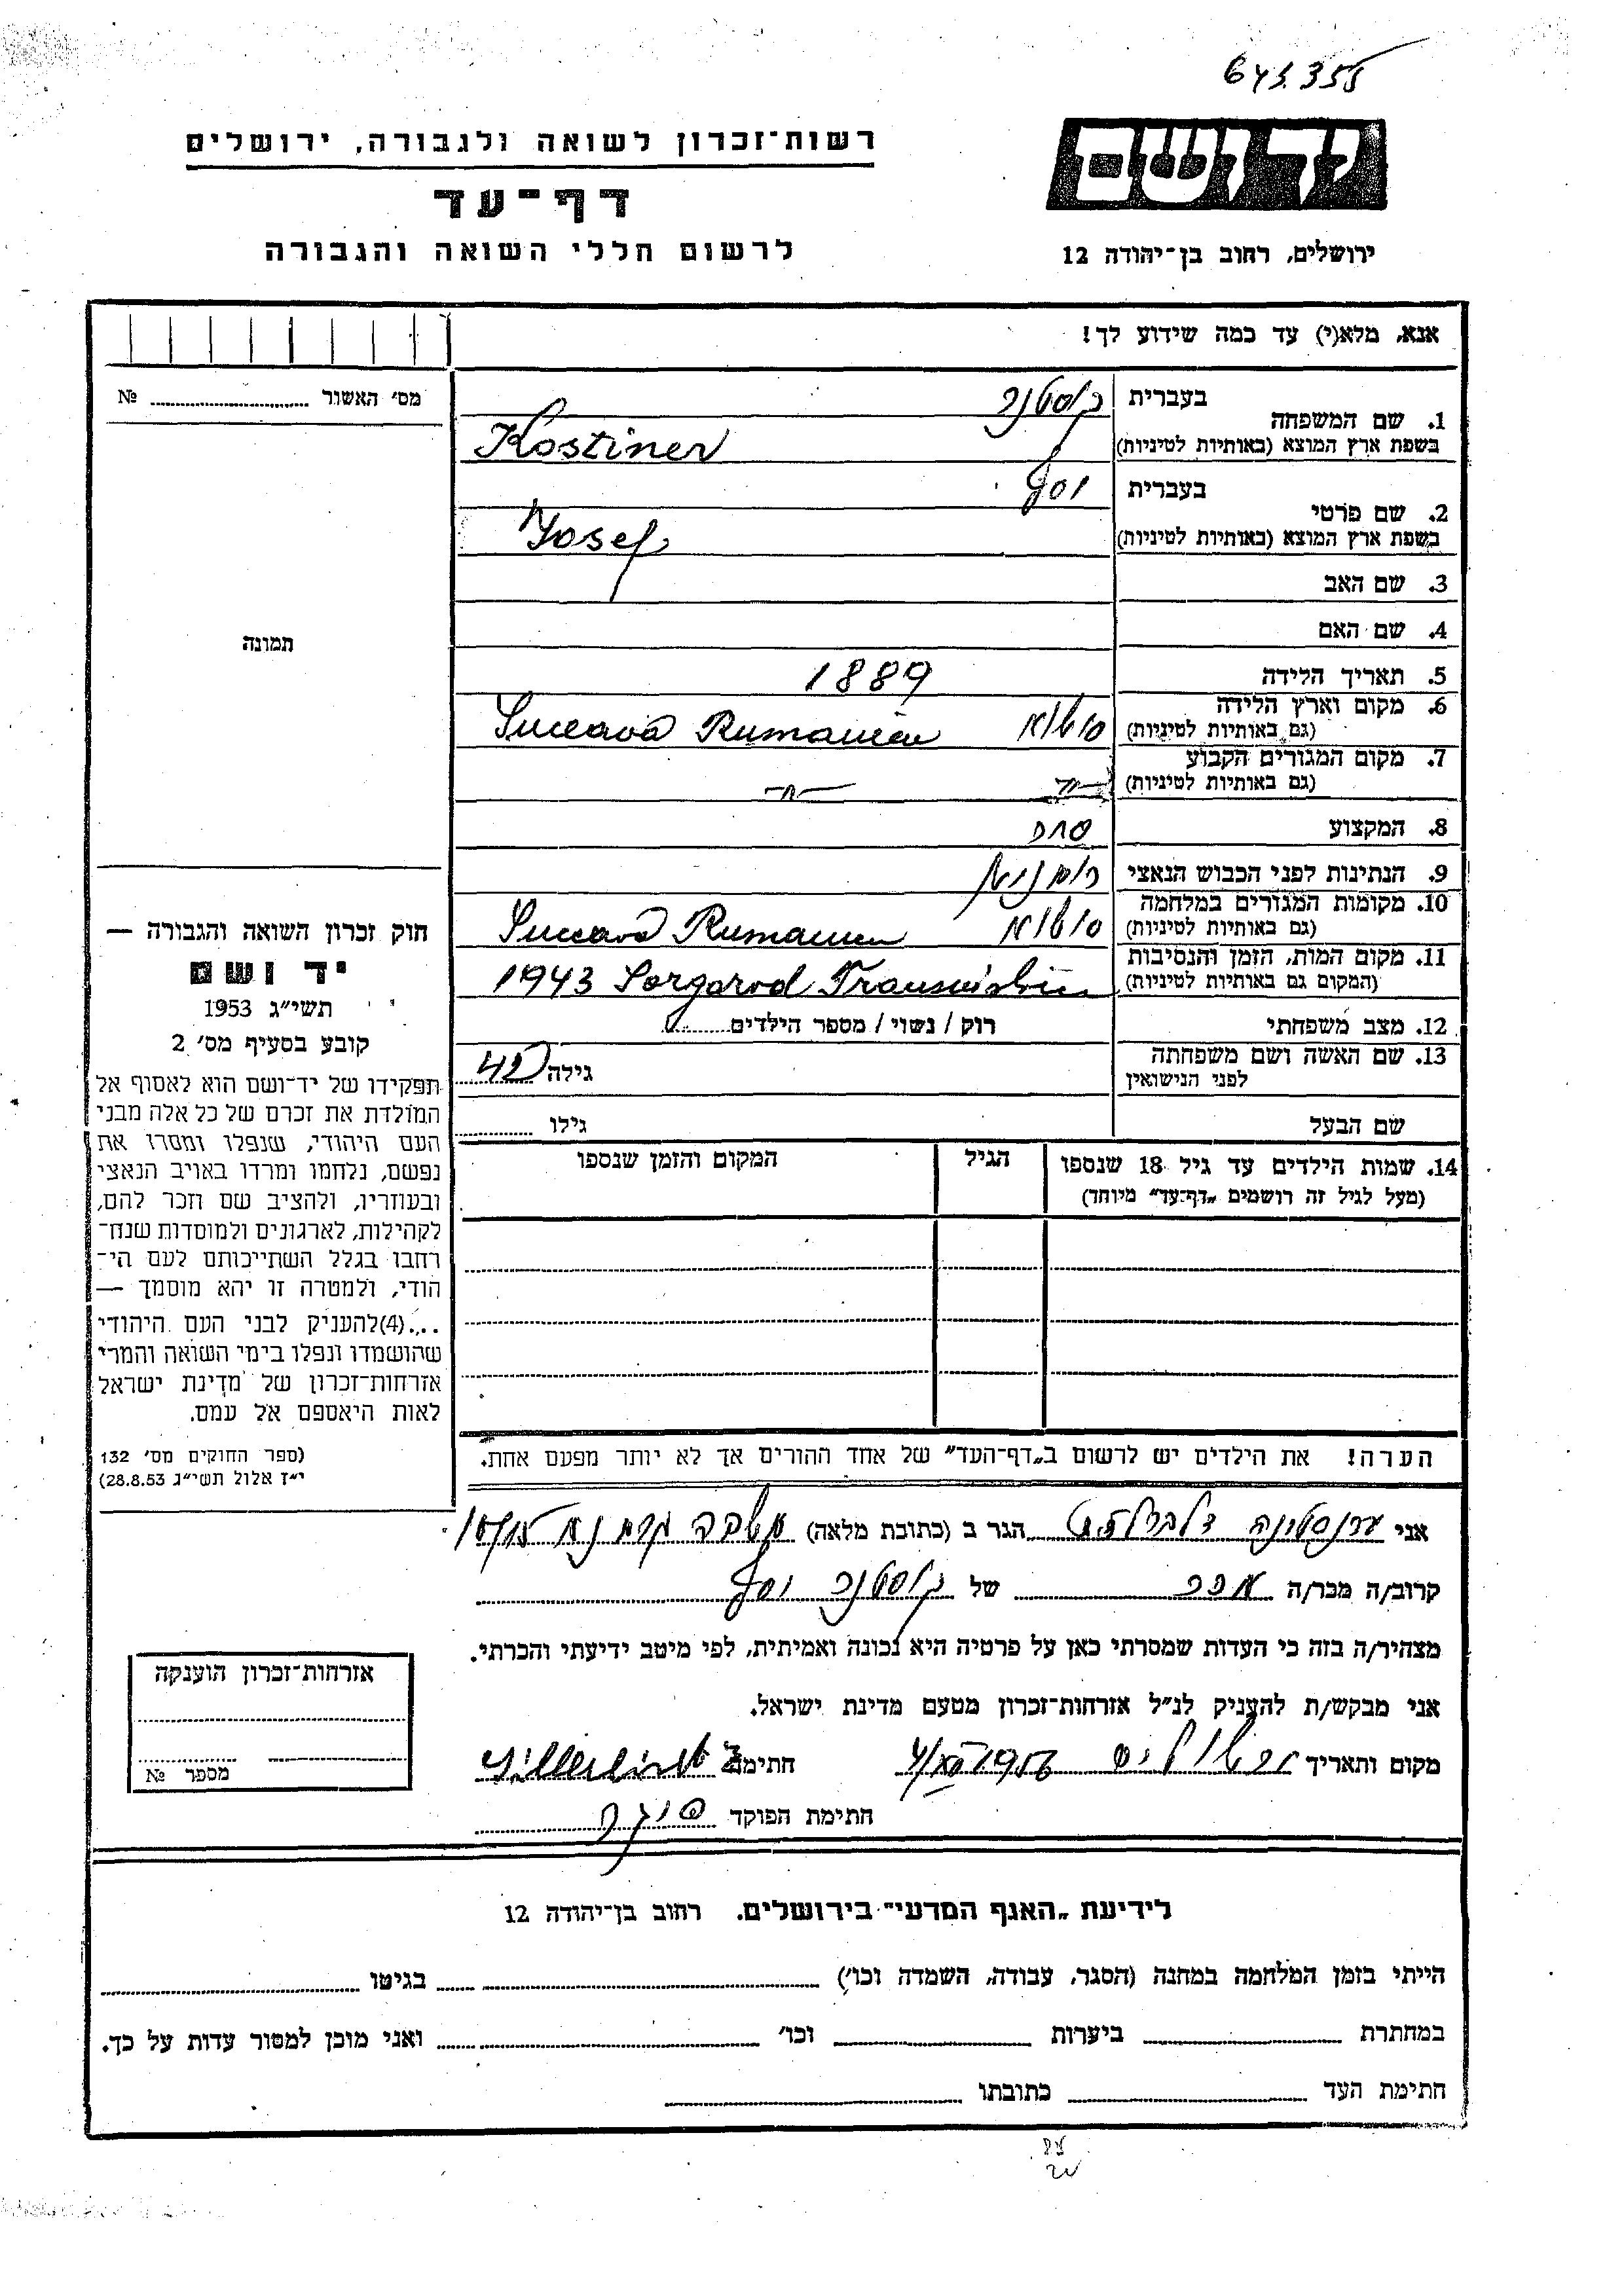 645355
רשות־זכרון לשואה ולגבורה, ירושלים
דף־עד
לרשום חללי השואה והגבורה
יד ושם
ירושלים, רחוב בן־יהודה 12
אנא, מלא(י) עד כמה שידוע לך!
מס׳ האשור №
תמונה
1. שם המשפחה
בעברית קוסטנר
בשפת ארץ המוצא (באותיות לטיניות) Kostiner
2. שם פרטי
בעברית יוסף
בשפת ארץ המוצא (באותיות לטיניות) Josef
3. שם האב
4. שם האם
5. תאריך הלידה 1889
6. מקום וארץ הלידה
(גם באותיות לטיניות) Suceava Rumanien
7. מקום המגורים הקבוע
(גם באותיות לטיניות) —״—
8. המקצוע סוחר
9. הנתינות לפני הכבוש הנאצי רומנית
10. מקומות המגורים במלחמה
(גם באותיות לטיניות) Suceava Rumanien
11. מקום המות, הזמן והנסיבות
(המקום גם באותיות לטיניות) 1943 Sargorod Transnistrien
12. מצב משפחתי רוק / נשוי / מספר הילדים
13. שם האשה ושם משפחתה
לפני הנישואין גילה 42
שם הבעל גילו
14. שמות הילדים עד גיל 18 שנספו הגיל המקום והזמן שנספו
(מעל לגיל זה רושמים „דף־עד״ מיוחד)
הערה! את הילדים יש לרשום ב„דף־העד״ של אחד ההורים אך לא יותר מפעם אחת.
חוק זכרון השואה והגבורה —
יד ושם
תשי״ג 1953
קובע בסעיף מס׳ 2
תפקידו של יד־ושם הוא לאסוף אל
המולדת את זכרם של כל אלה מבני
העם היהודי, שנפלו ומסרו את
נפשם, נלחמו ומרדו באויב הנאצי
ובעוזריו, ולהציב שם וזכר להם,
לקהילות, לארגונים ולמוסדות שנח־
רחבו בגלל השתייכותם לעם הי־
הודי, ולמטרה זו יהא מוסמך —
...(4)להעניק לבני העם היהודי
שהושמדו ונפלו בימי השואה והמרי
אזרחות־זכרון של מדינת ישראל
לאות היאספם אל עמם.
(ספר החוקים מס׳ 132
י״ז אלול תשי״ג 28.8.53)
אני הגר ב (כתובת מלאה)
קרוב/ה מכר/ה של קוסטנר יוסף
מצהיר/ה בזה כי העדות שמסרתי כאן על פרטיה היא נכונה ואמיתית, לפי מיטב ידיעתי והכרתי.
אני מבקש/ת להעניק לנ״ל אזרחות־זכרון מטעם מדינת ישראל.
מקום ותאריך ירושלים 1956 חתימה
חתימת הפוקד
אזרחות־זכרון הוענקה
מספר №
לידיעת „האגף המדעי״ בירושלים. רחוב בן־יהודה 12
הייתי בזמן המלחמה במחנה (הסגר, עבודה, השמדה וכו׳) בגיטו
במחתרת ביערות וכו׳ ואני מוכן למסור עדות על כך.
חתימת העד כתובתו